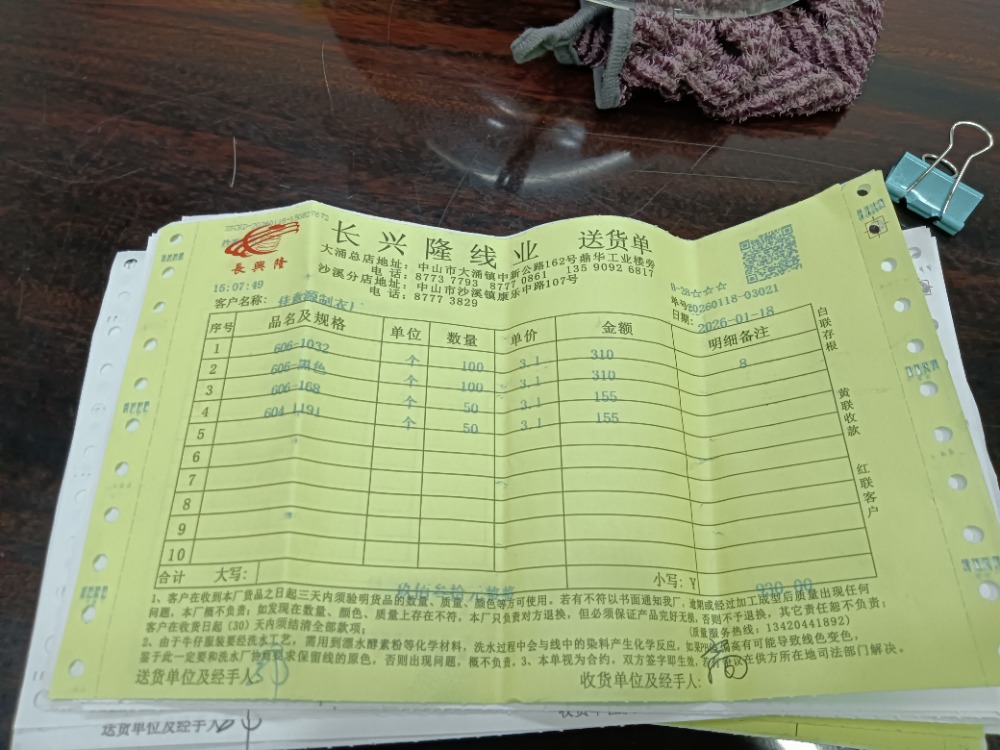 长兴隆线业 送货单
長興隆
大涌总店地址：中山市大涌镇中新公路162号鼎华工业楼旁
电 话：8773 7793 8777 0861 135 9092 6817
沙溪分店地址：中山市沙溪镇康乐中路107号
电 话：8777 3829
15:07:49
客户名称：
单号20260118-03021
日期：2026-01-18
序号 品名及规格 单位 数量 单价 金额 明细备注
1 606-1032 个 100 3.1 310 8
2 606-黑色 个 100 3.1 310
3 606-168 个 50 3.1 155
4 604 1191 个 50 3.1 155
5
6
7
8
9
10
合计 大写：玖佰叁拾元整 小写：¥ 930.00
白联存根
黄联收款
红联客户
1、客户在收到本厂货品之日起三天内须验明货品的数量、质量、颜色等方可使用，若有不符以书面通知我厂，逾期或经过加工成型后质量出现任何
问题，本厂概不负责；如发现在数量、颜色、质量上存在不符，本厂只负责对方退换，但必须保证产品完好无损，否则不予退换，其它责任恕不负责；
客户在收货日起（30）天内须结清全部款项； （质量服务热线：13420441892）
2、由于牛仔服装要经洗水工艺，需用到漂水酵素粉等化学材料，洗水过程中会与线中的染料产生化学反应，如果PH值偏高有可能导致线色变色，
鉴于此一定要和洗水厂 来保留线的原色，否则出现问题，概不负责。3、本单视为合约，双方签字即生效， 在供方所在地司法部门解决。
送货单位及经手人 收货单位及经手人：
送货单位及经手人